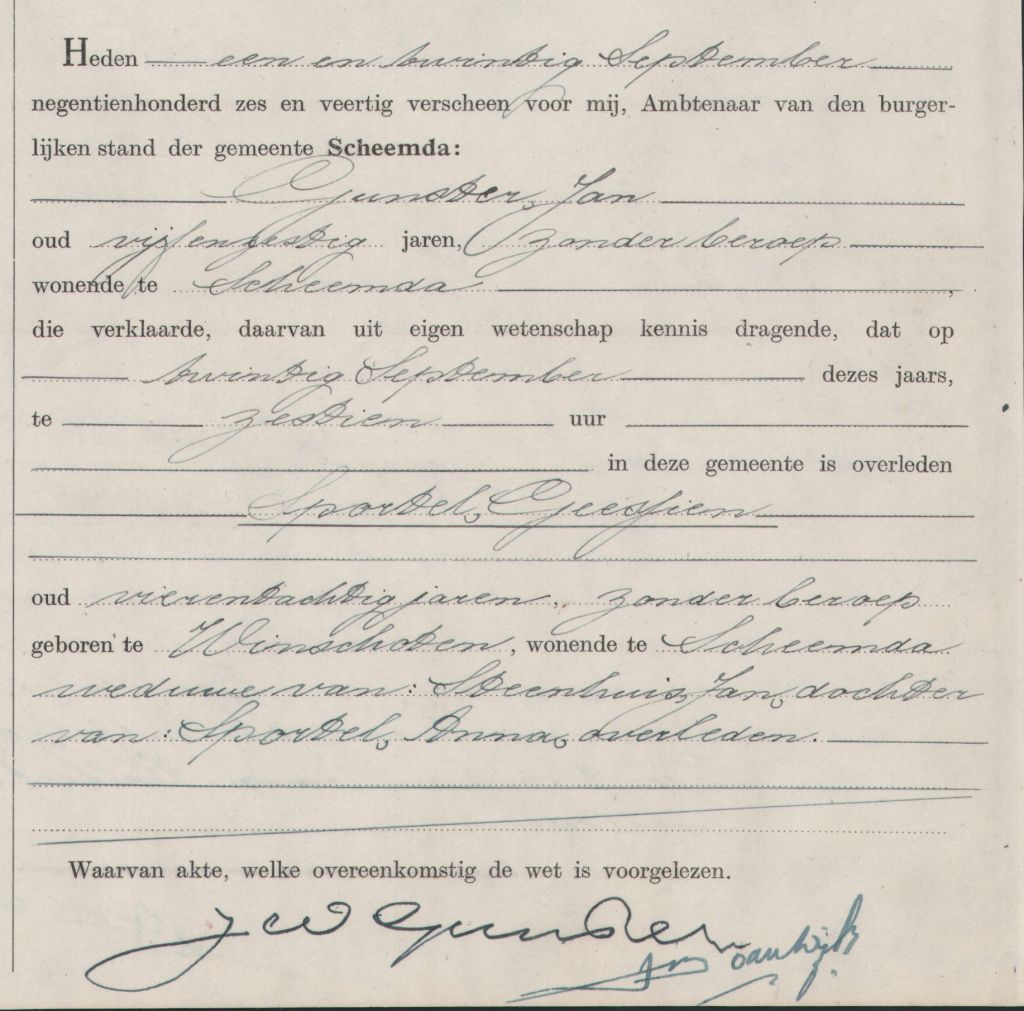 Heden een en twintig September
negentienhonderd zes en veertig verscheen voor mij, Ambtenaar van den burger-
lijken stand der gemeente Scheemda:
Gunster, Jan
oud vijfenzestig jaren, zonder beroep
wonende te Scheemda,
die verklaarde, daarvan uit eigen wetenschap kennis dragende, dat op
twintig September dezes jaars,
te zestien uur
in deze gemeente is overleden
Sportel, Geessien
oud vierentachtig jaren, zonder beroep
geboren te Winschoten, wonende te Scheemda
weduwe van: Steenhuis, Jan, dochter
van: Sportel, Anna, overleden.
Waarvan akte, welke overeenkomstig de wet is voorgelezen.
J W Gunster
van Wijk